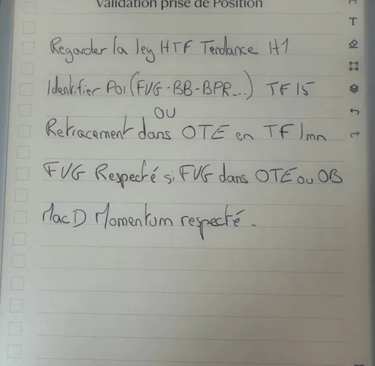 Validation prise de Position
Regarder la ley HTF Tendance H1
Identifier POI (FVG-BB-BPR...) TF 15
OU
Retracement dans OTE en TF 1mn
FVG Respecté si FVG dans OTE ou OB
MacD Momentum respecté.
T